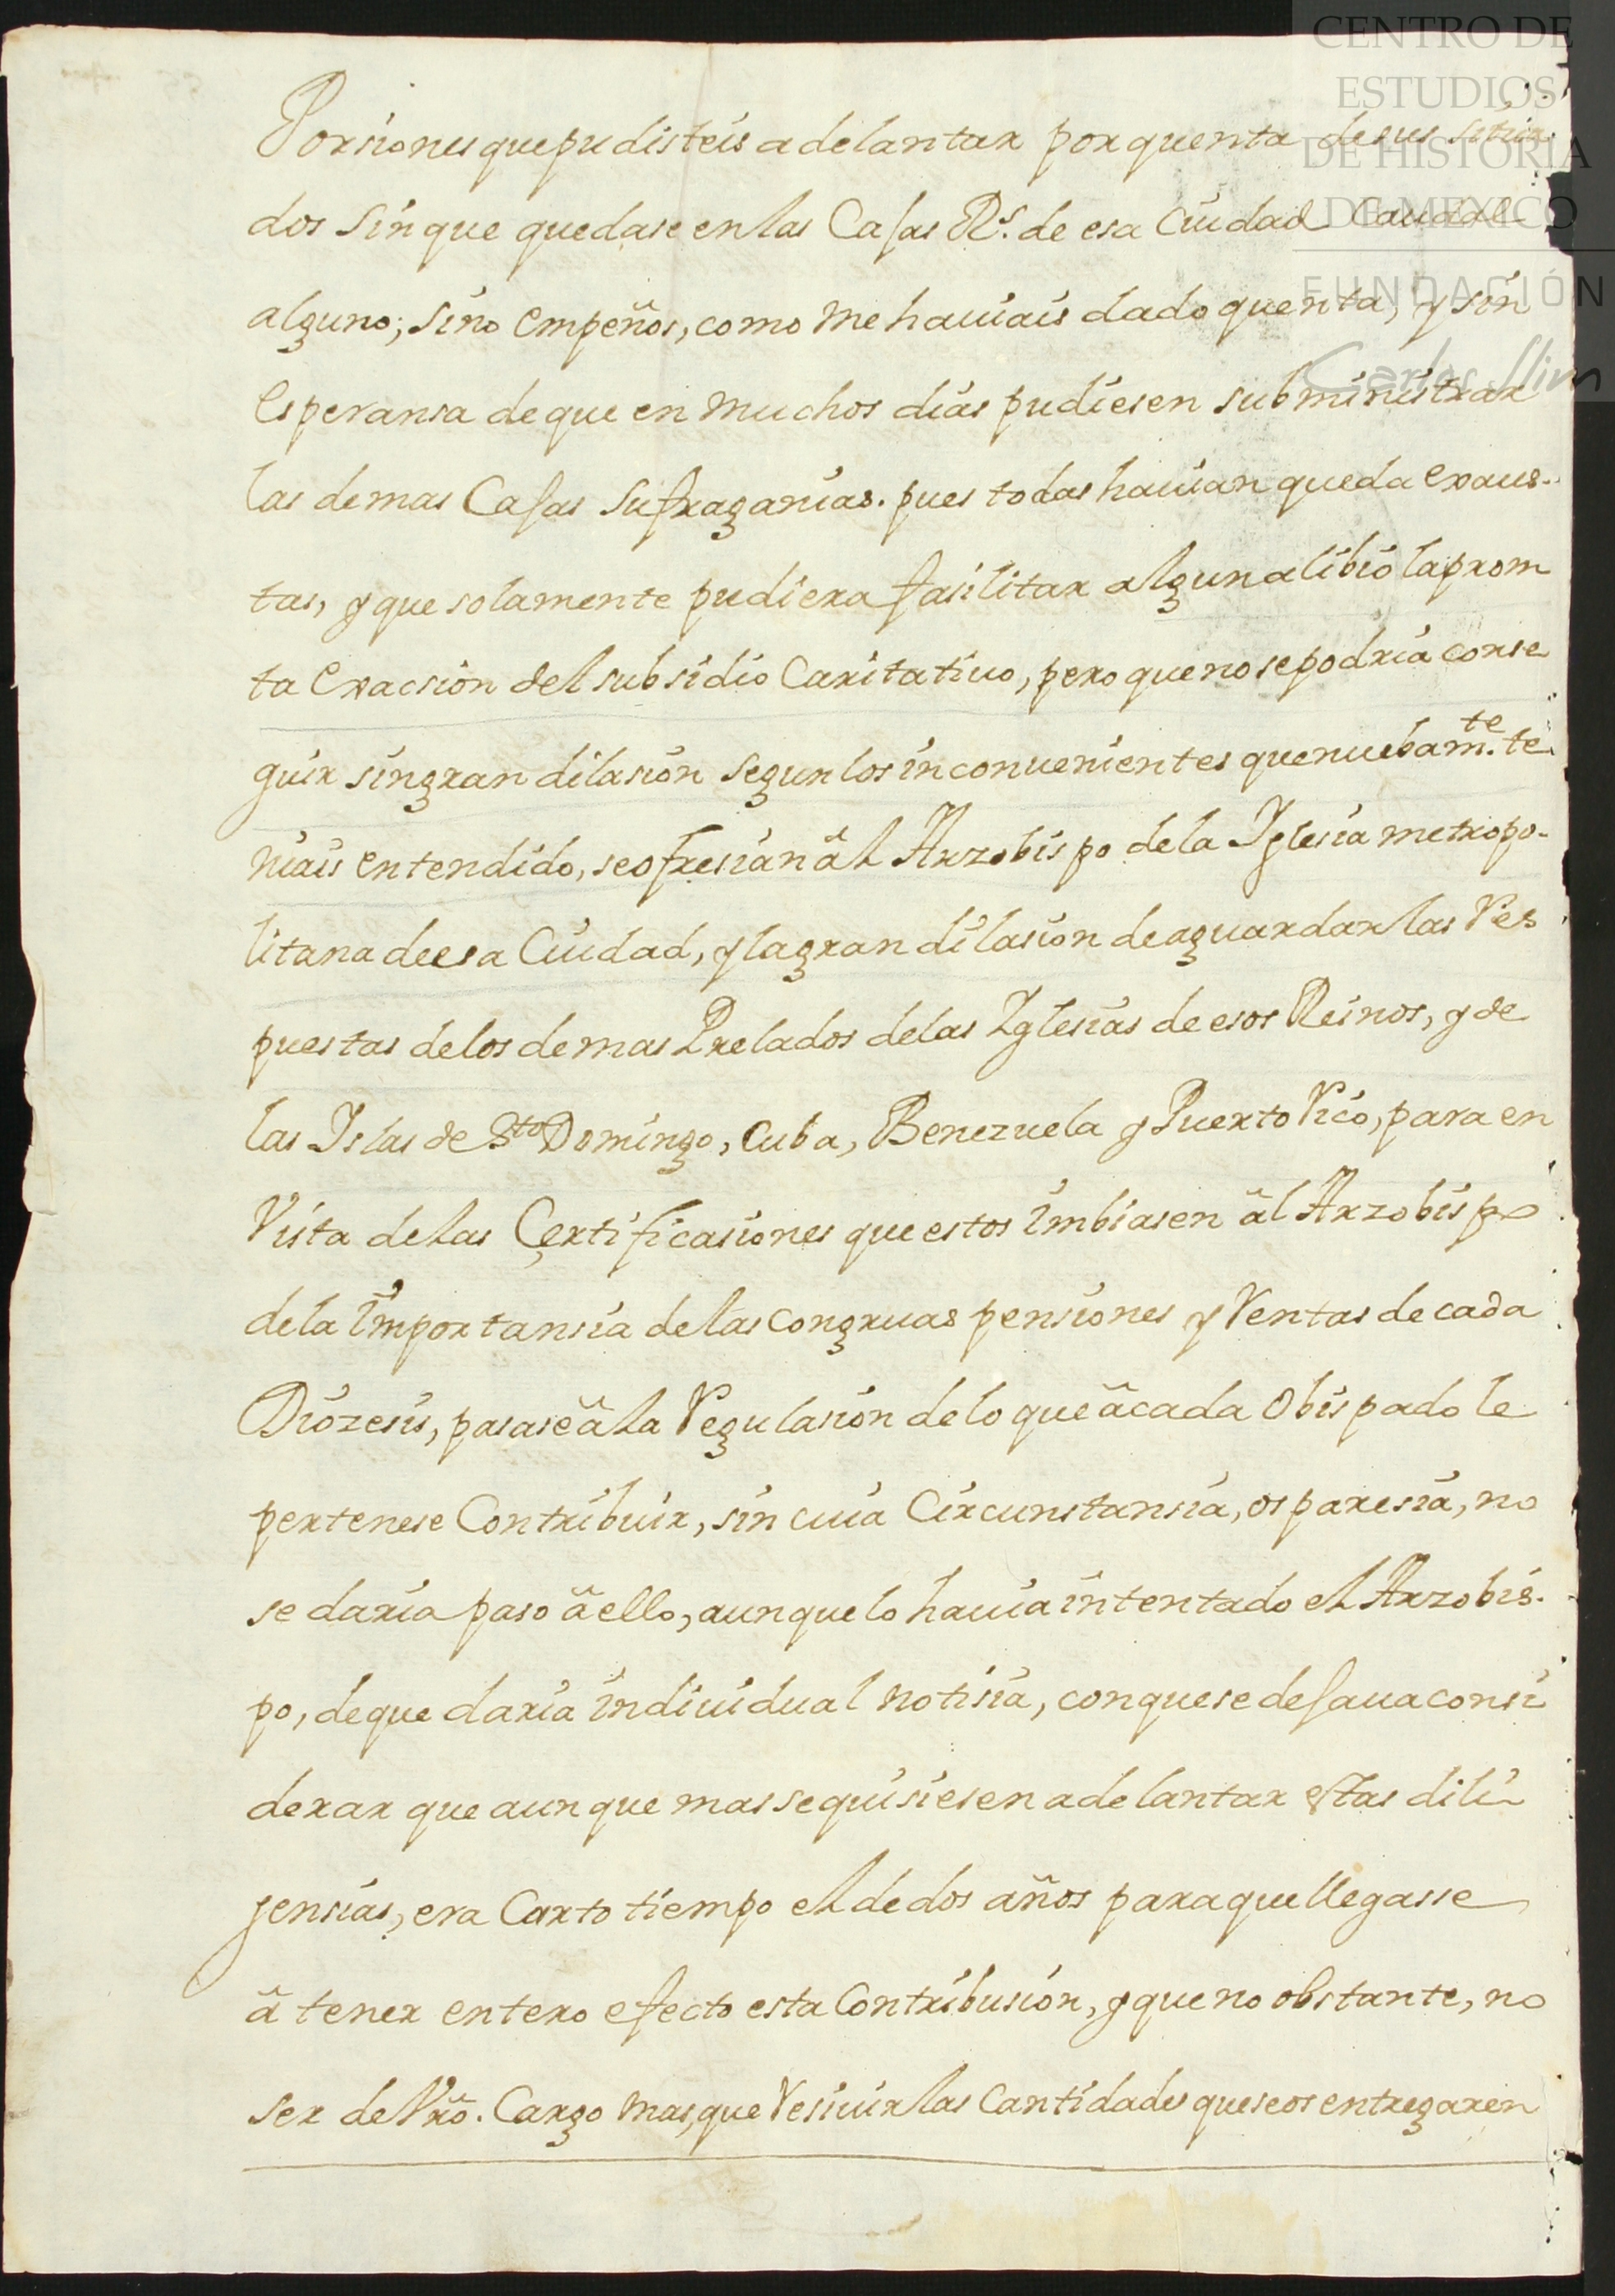 CENTRO DE
ESTUDIOS
DE HISTORIA
DE MEXICO
FUNDACIÓN
Carlos Slim
Porsiones que pudisteis adelantar por quenta de sus situa
dos sin que quedase en las Caſas Rs. de esa Ciudad Caudal
alguno; sino empeños, como me hauiais dado quenta, y sin
esperansa de que en muchos dias pudiesen subministrar
las demas Caſas sufraganias. pues todas hauian queda exaus-
tas, y que solamente pudiera fasilitar algun alibio la prom
ta exacsion del subsidio Caritatiuo, pero que no se podria conse
guir sin gran dilasion segun los inconuenientes que nuebamte. te
niais entendido, se ofresian âl Arzobispo de la Iglesia metropo-
litana de esa Ciudad, y la gran dilasion de aguardar las Res
puestas de los demas Prelados de las Iglesias de esos Reinos, y de
las Islas de Sto Domingo, Cuba, Benezuela y Puerto Rico, para en
Vista de las Çertificasiones que estos imbiasen âl Arzobispo
de la importansia de las congruas pensiones y Rentas de cada
Diozesis, pasase â la Regulasion de lo que â cada Obispado le
pertenese Contribuir, sin cuia Circunstansia, os paresia, no
se daria paso â ello, aunque lo hauia intentado el Arzobis-
po, de que daria indiuidual notisia, con que se deſaua consi
derar que aunque mas se quisiesen adelantar eſtas dili
jensias, era Carto tiempo el de dos años para que llegasse
â tener entero efecto esta Contribusion, y que no obstante, no
ser de Vrõ. Cargo mas, que Resiuir las Cantidades que se os entregaren